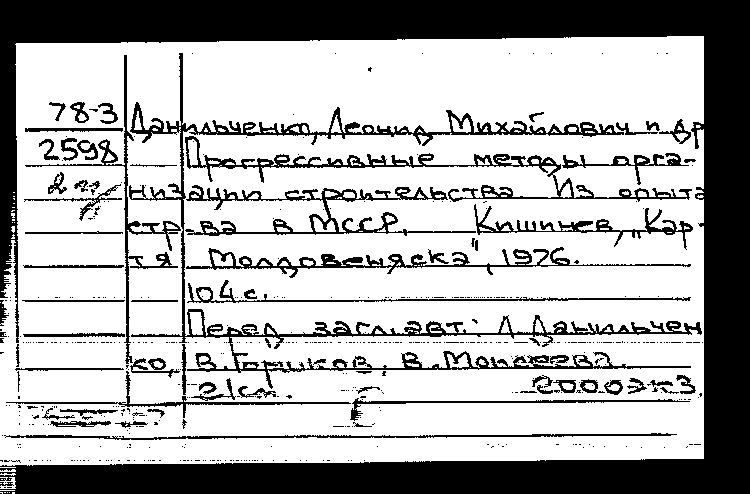 78-3 Данильченко, Леонид Михайлович и др
2598 Прогрессивные методы орга-
низации строительства. Из опыта
стр-ва в МССР. Кишинев, „Кар-
тя Молдовеняска", 1976.
104 с.
Перед загл. авт.: Л. Данильчен
ко, В. Горшков, В. Моисеева.
2000экз.